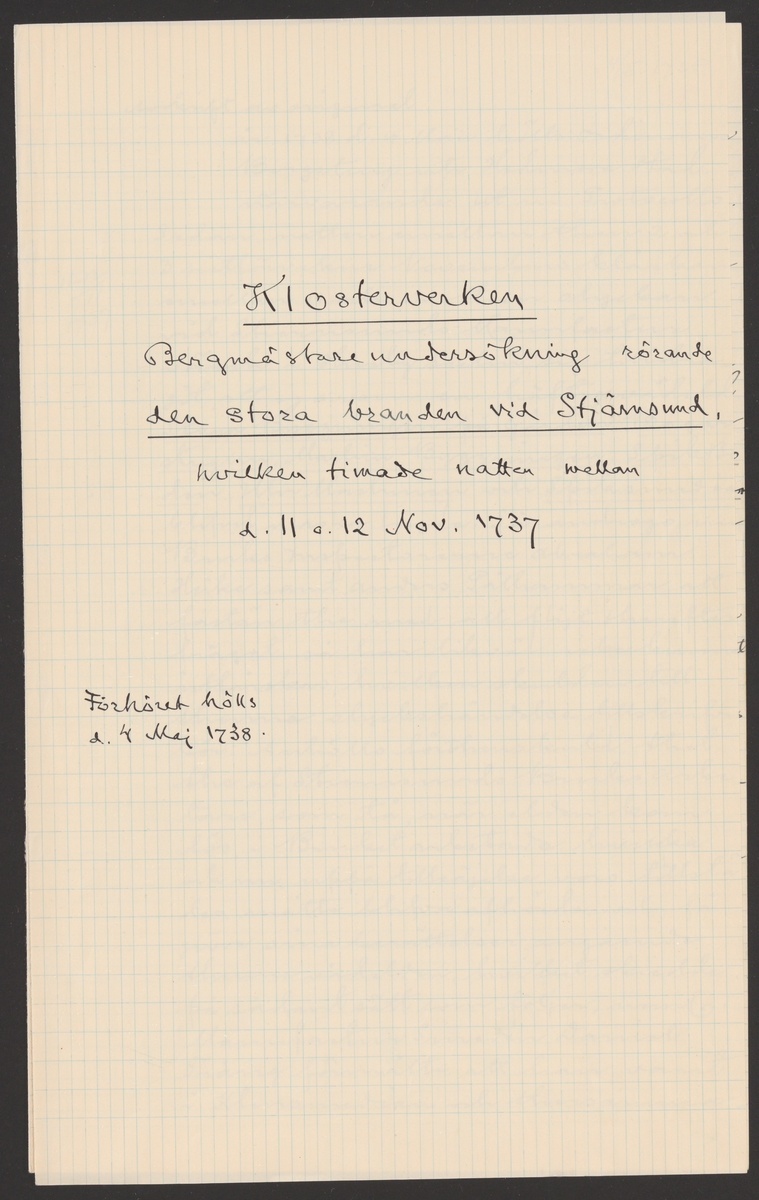 Klosterverken
Bergmästareundersökning rörande
den stora branden vid Stjärnsund,
hvilken timade natten mellan
d. 11 o. 12 Nov. 1737
Förhöret hölls
d. 4 Maj 1738.